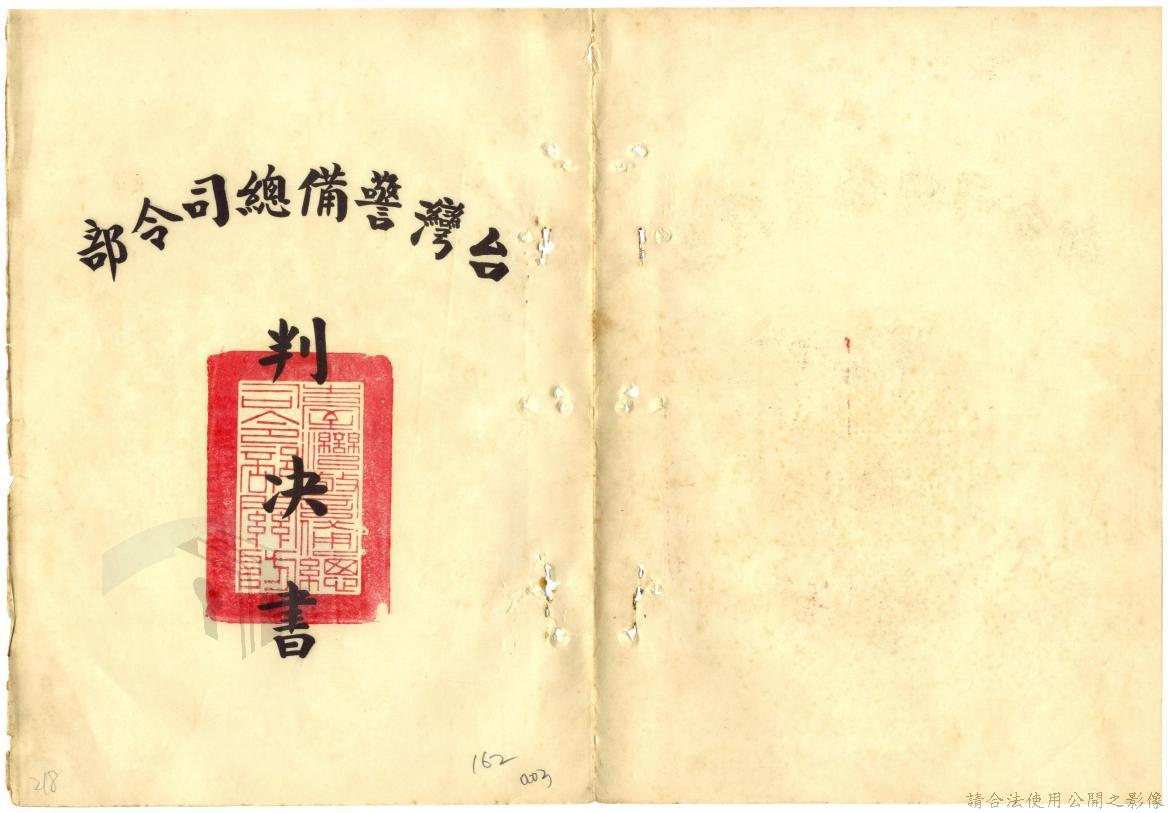 台灣警備總司令部
判決書
臺灣警備總
司令部關防
162
003
218
請合法使用公開之影像